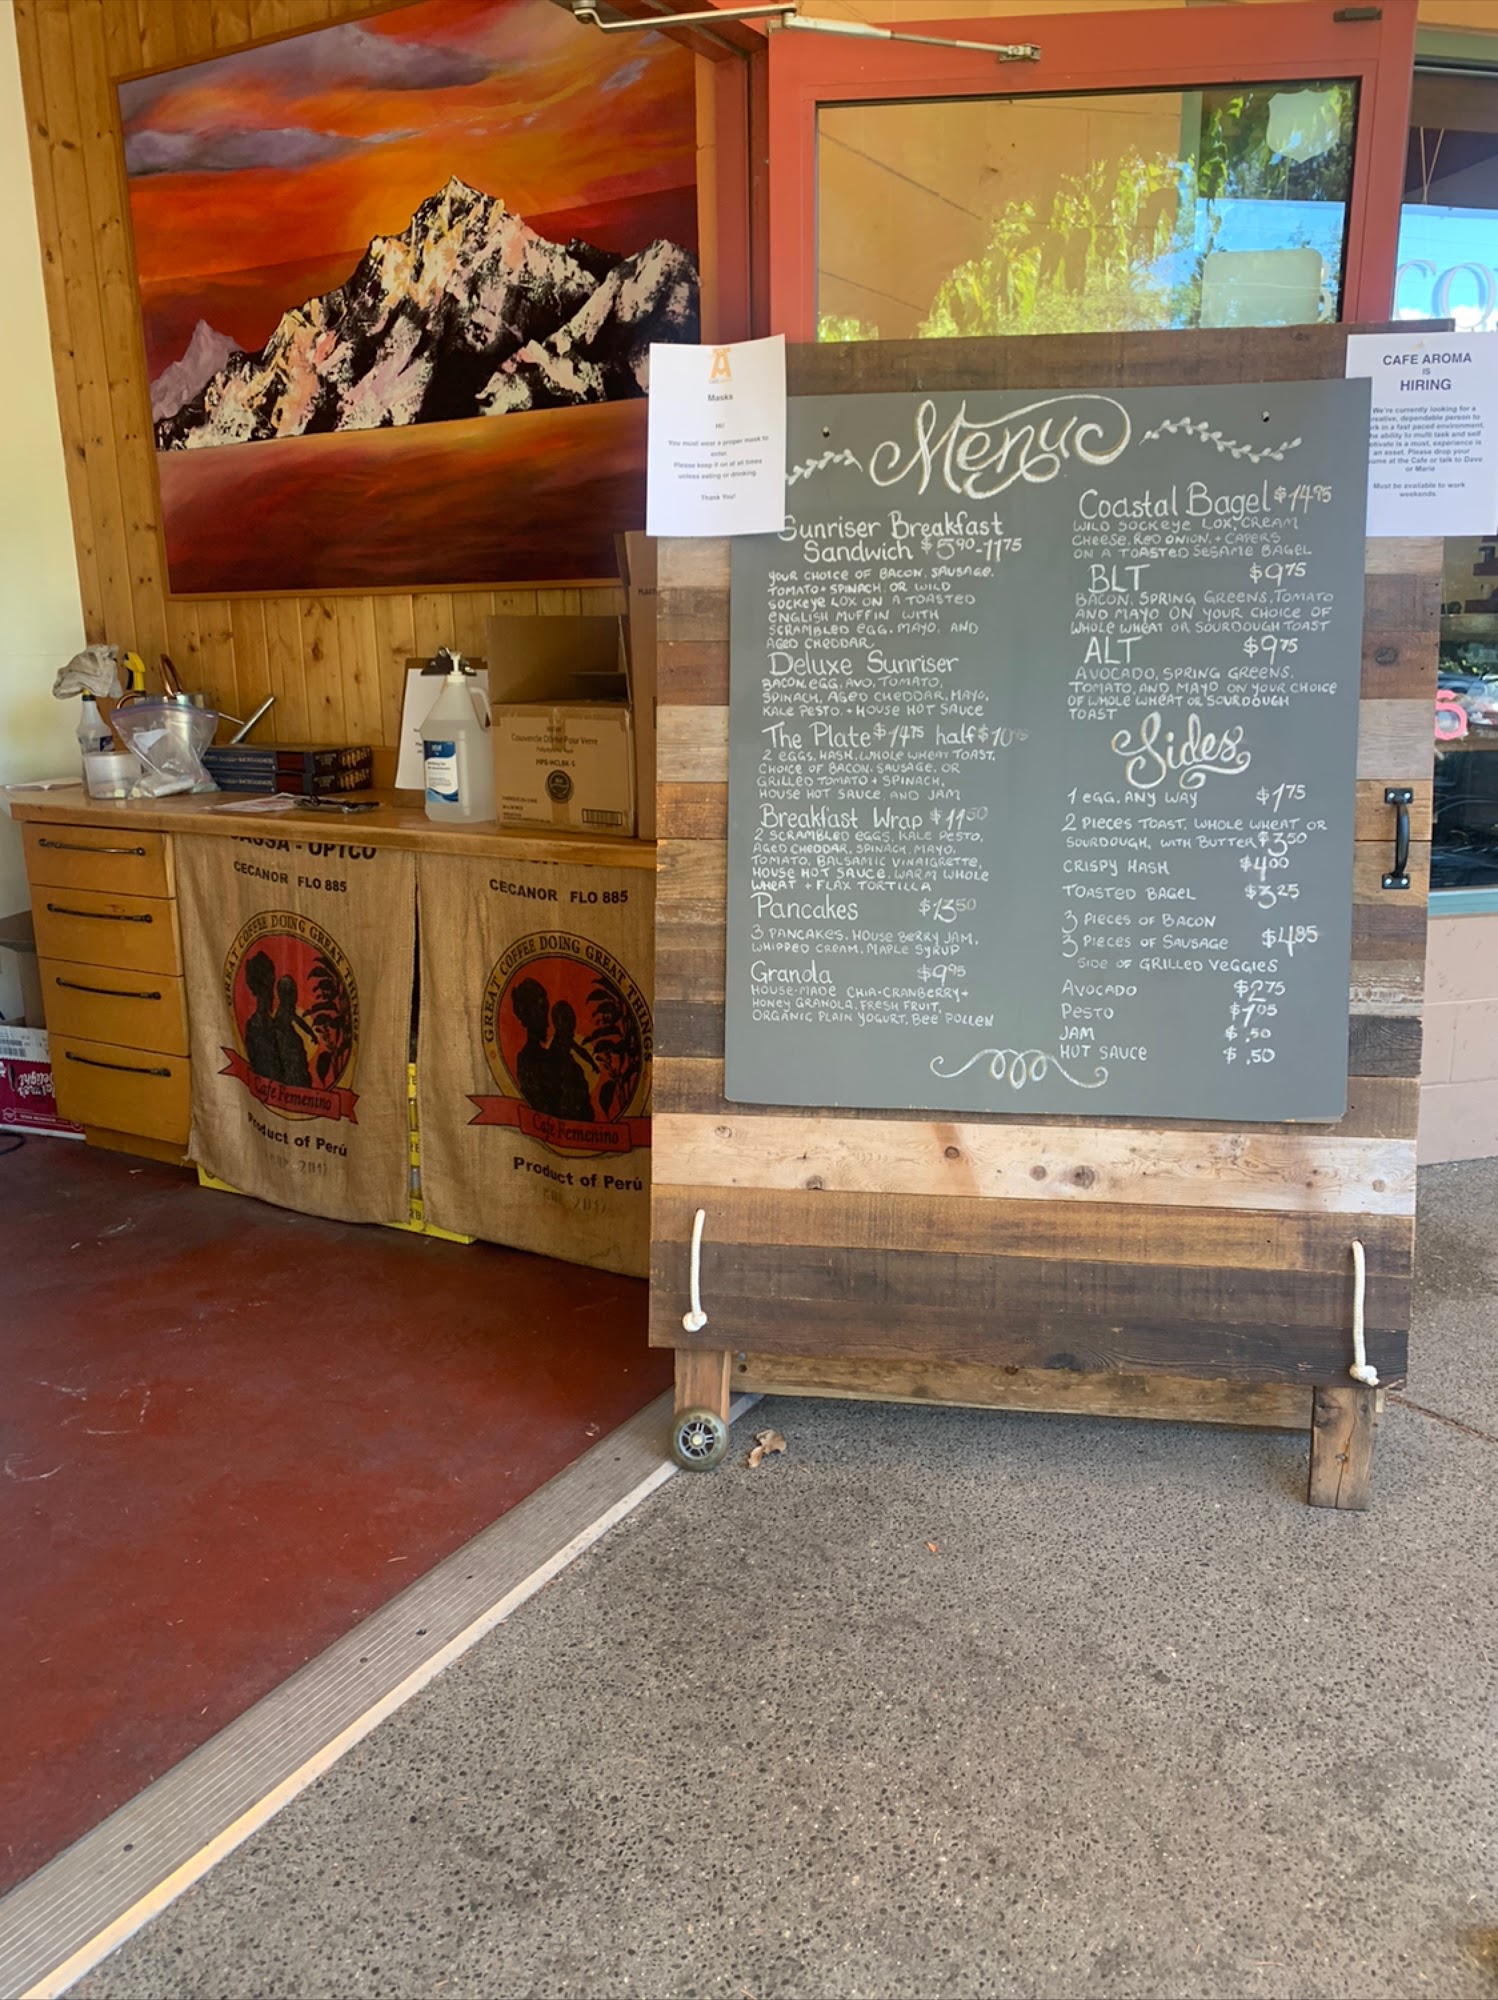 Masks
Hi!
You must wear a proper mask to
enter.
Please keep it on at all times
unless eating or drinking.
Thank You!
CAFE AROMA
IS
HIRING
We're currently looking for a
creative, dependable person to
in a fast paced environment,
ability to multi task and self
is a must, experience is
an asset. Please drop your
at the Cafe or talk to Dave
or Maria
Must be available to work
weekends.
Menu
Sunriser Breakfast
Sandwich $5.90-11.75
YOUR CHOICE OF BACON, SAUSAGE,
TOMATO + SPINACH, OR WILD
SOCKEYE LOX ON A TOASTED
ENGLISH MUFFIN WITH
SCRAMBLED EGG, MAYO, AND
AGED CHEDDAR.
Deluxe Sunriser
BACON, EGG, AVO, TOMATO,
SPINACH, AGED CHEDDAR, MAYO,
KALE PESTO, + HOUSE HOT SAUCE
The Plate $14.75 half $10
2 EGGS, HASH, WHOLE WHEAT TOAST,
CHOICE OF BACON, SAUSAGE, OR
GRILLED TOMATO + SPINACH
HOUSE HOT SAUCE, AND JAM
Breakfast Wrap $11.50
2 SCRAMBLED EGGS, KALE PESTO,
AGED CHEDDAR, SPINACH, MAYO,
TOMATO, BALSAMIC VINAIGRETTE,
HOUSE HOT SAUCE, WARM WHOLE
WHEAT + FLAX TORTILLA
Pancakes $13.50
3 PANCAKES, HOUSE BERRY JAM,
WHIPPED CREAM, MAPLE SYRUP
Granola $9.95
HOUSE-MADE CHIA-CRANBERRY +
HONEY GRANOLA, FRESH FRUIT,
ORGANIC PLAIN YOGURT, BEE POLLEN
Coastal Bagel $14.95
WILD SOCKEYE LOX, CREAM
CHEESE, RED ONION, + CAPERS
ON A TOASTED SESAME BAGEL
BLT $9.75
BACON, SPRING GREENS, TOMATO
AND MAYO ON YOUR CHOICE OF
WHOLE WHEAT OR SOURDOUGH TOAST
ALT $9.75
AVOCADO, SPRING GREENS,
TOMATO, AND MAYO ON YOUR CHOICE
OF WHOLE WHEAT OR SOURDOUGH
TOAST
Sides
1 EGG, ANY WAY $1.75
2 PIECES TOAST, WHOLE WHEAT OR
SOURDOUGH, WITH BUTTER $3.50
CRISPY HASH $4.00
TOASTED BAGEL $3.25
3 PIECES OF BACON
3 PIECES OF SAUSAGE $4.85
SIDE OF GRILLED VEGGIES
AVOCADO $2.75
PESTO $1.05
JAM $ .50
HOT SAUCE $ .50
Couvercle Dôme Pour Verre
CECANOR FLO 885
GREAT COFFEE DOING GREAT THINGS
Cafe Femenino
Product of Perú
CECANOR FLO 885
GREAT COFFEE DOING GREAT THINGS
Cafe Femenino
Product of Perú